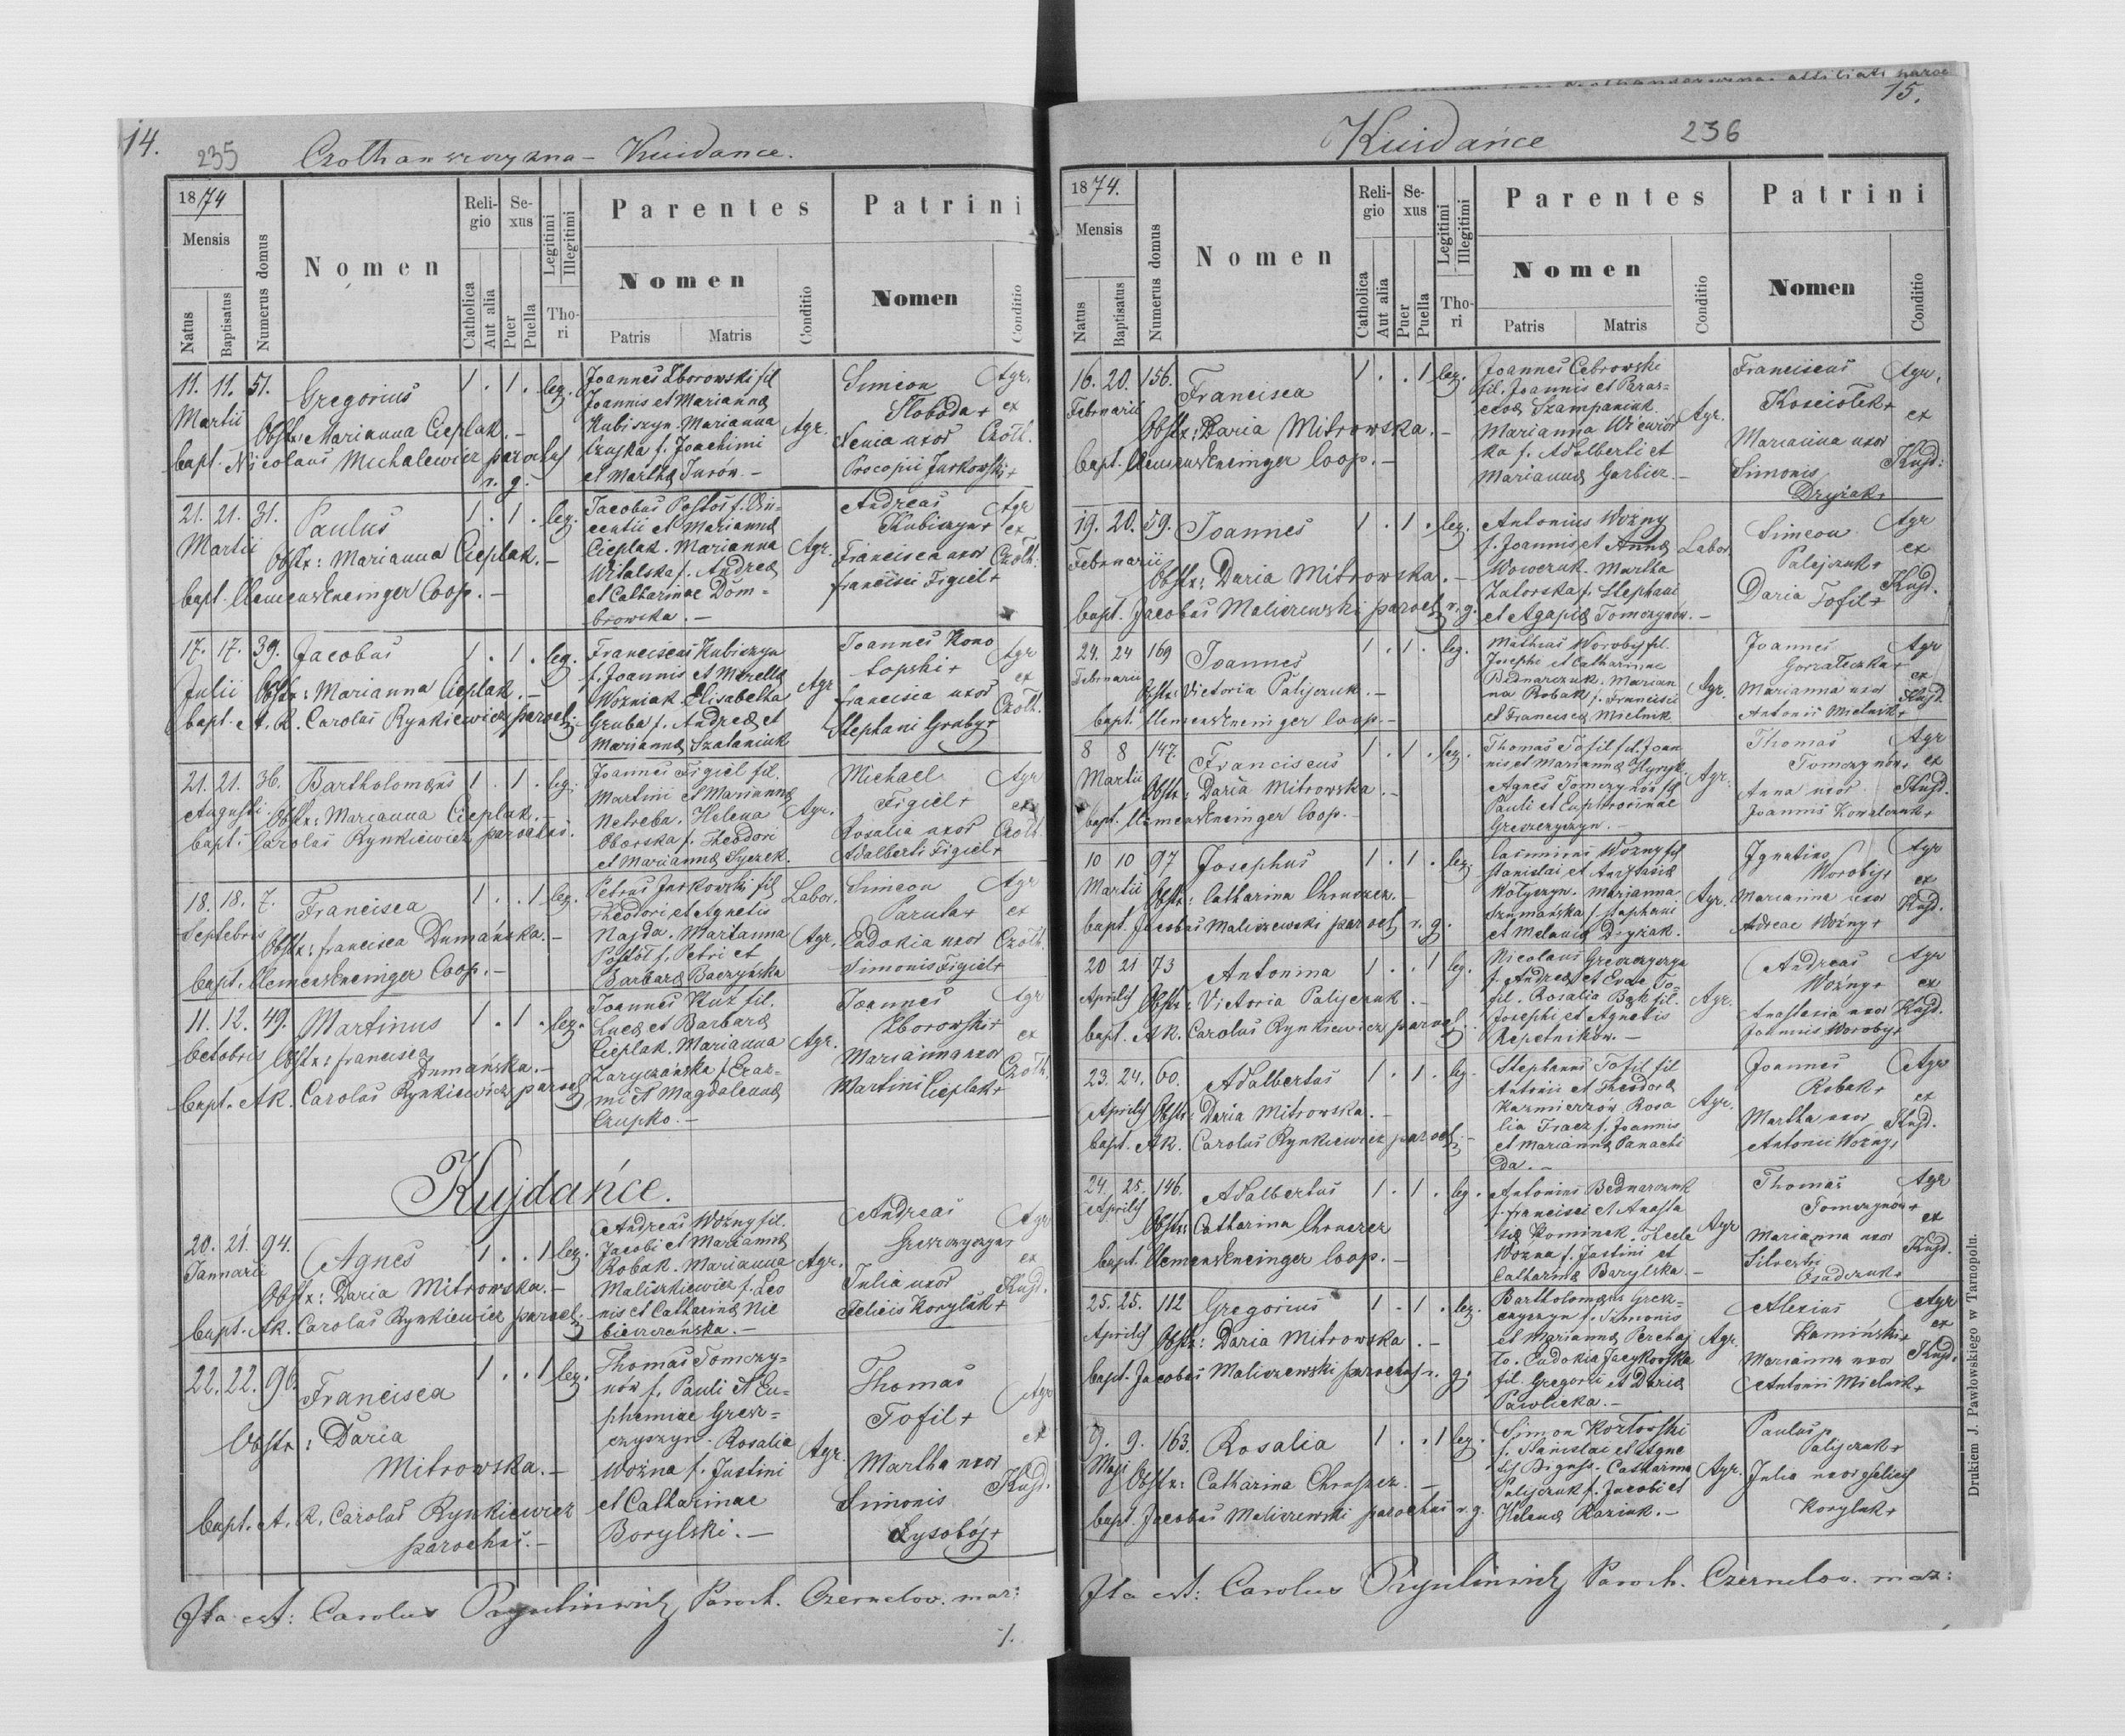 14.
235
Czolhanszczyzna - Kuidance.
1874
Mensis
Natus
Baptisatus
Numerus domus
Nomen
Religio
Catholica
Aut alia
Sexus
Puer
Puella
Legitimi
Illegitimi
Thori
Parentes
Nomen
Patris
Matris
Conditio
Patrini
Nomen
Conditio
11. 11. 51. Gregorius 1 . 1 . leg.
Martii
Obstx: Marianna Cieplak.-
bapt. Nicolaus Michalewicz parochus
r. g.
Joannes Zborowski fil
Joannis et Mariannæ
Kubiszyn. Marianna
Czupka f. Joachimi
et Marthæ Juron.-
Agr.
Simeon
Sloboda+
Xenia uxor
Procopii Jurkowski+
Agr.
ex
Czołh.
21. 21. 31. Paulus 1 . 1 . leg.
Martii
Obstx: Marianna Cieplak.-
bapt. Clemens Eneinger Coop.-
Jacobus Postoł f. Vin=
centii et Mariannæ
Cieplak. Marianna
Witalska f. Andreæ
et Catharinae Dom=
browska.-
Agr.
Andreas
Kubiszyn+
Francisca uxor
Francisci Figiel+
Agr
ex
Czołh.
17. 17. 39. Jacobus 1 . 1 . leg.
Julii Obstx: Marianna Cieplak.-
bapt. A. R. Carolus Rynkiewicz paroch.
Franciscus Kubiszyn
f. Joannis et Marellæ
Wozniak. Elisabetha
Gruba f. Andreæ et
Mariannæ Szataniuk
Agr
Joannes Kono
topski+
Francisca uxor
Stephani Gruby+
Agr
ex
Czołh.
21. 21. 36. Bartholomæus 1 . 1 . leg.
Augusti Obstx: Marianna Cieplak.-
bapt. Carolus Rynkiewicz parochus.
Joannes Figiel fil.
Martini et Mariannæ
Netreba. Helena
Oborska f. Theodori
et Mariannæ Syczek.
Agr.
Michael
Figiel+
Rosalia uxor
Adalberti Figiel+
Agr
ex
Czołh.
18. 18. 7. Francisca 1 . . 1 leg.
Septebris
Obstx: Francisca Dumańska.-
bapt. Clemens Eneinger Coop.-
Petrus Jurkowski fil
Theodori et Agnetis
Najda. Marianna
Postoł f. Petri et
Barbaræ Baczyńska
Labor.
Agr.
Simeon
Parula+
Eudokia uxor
Simonis Figiel+
Agr
ex
Czołh.
11. 12. 49. Martinus 1 . 1 . leg.
Octobris Obstx: Francisca
Dumańska.-
bapt. AR. Carolus Rynkiewicz paroch
Joannes Kuź fil.
Lucæ et Barbaræ
Cieplak. Marianna
Zaryczańska f. Eras=
mi et Magdalenæ
Czupko.-
Agr.
Joannes
Zborowski+
Marianna uxor
Martini Cieplak+
Agr
ex
Czołh.
Kujdańce.
20. 21. 94. Agnes 1 . . 1 leg.
Januarii
Obstx: Daria Mitrowska.-
bapt. AR. Carolus Rynkiewicz paroch.
Andreas Woźny fil.
Jacobi et Mariannæ
Robak. Marianna
Maliszkiewicz f. Leo
nis et Catharinæ Nie
bieszczańska.-
Agr.
Andreas
Greszczyszyn+
Julia uxor
Felicis Koryluk+
Agr
ex
Kujd.
22. 22. 96. Francisca 1 . . 1 leg.
Obstx: Daria
Mitrowska.-
bapt. A. R. Carolus Rynkiewicz
parochus.-
Thomas Tomczy=
nów f. Pauli et Eu=
phemiae Gresz=
czyszyn. Rosalia
Woźna f. Justini
et Catharinae
Borylski.-
Agr.
Thomas
Tofil+
Martha uxor
Simonis
Łysobój+
Agr
ex
Kujd.
Ita est: Carolus Rynkiewicz Paroch. Czernelov. maz:
15.
Kuidańce
236
1874.
Mensis
Natus
Baptisatus
Numerus domus
Nomen
Religio
Catholica
Aut alia
Sexus
Puer
Puella
Legitimi
Illegitimi
Thori
Parentes
Nomen
Patris
Matris
Conditio
Patrini
Nomen
Conditio
16. 20. 156. Francisca 1 . . 1 leg.
Februarii
Obstx: Daria Mitrowska.-
bapt. Clemens Eneinger Coop.-
Joannes Cebrowski
fil. Joannis et Paras=
cevæ Szampaniuk.
Marianna Wiewiór
ka f. Adalberti et
Mariannæ Garbicz.-
Agr.
Franciscus
Kosciołek+
Marianna uxor
Simonis
Dryżak+
Agr.
ex
Kujd:
19. 20. 59. Joannes 1 . 1 . leg.
Februarii
Obstx: Daria Mitrowska.-
bapt. Jacobus Maliszewski paroch r. g.
Antonius Woźny
f. Joannis et Annæ
Wowczuk. Martha
Zatorska f. Stephani
et Agapiæ Tomczynów.-
Labor.
Simeon
Palijczuk+
Daria Tofil+
Agr
ex
Kujd.
24. 24 169 Joannes 1 . 1 . leg.
Februarii
Obstx: Victoria Palijczuk.-
bapt. Clemens Eneinger Coop.-
Mathias Worobij fil.
Josephi et Catharinae
Bednarczuk. Marian
na Robak f. Francisci
et Franciscæ Mielnik
Agr.
Joannes
Marianna uxor
Antonii Mielnik+
Agr
ex
Kujd.
8 8 147. Franciscus 1 . 1 . leg.
Martii
Obstx: Daria Mitrowska.-
bapt. Clemens Eneinger Coop.-
Thomas Tofil fil. Joan
nis et Mariannæ
Agnes Tomczynów fil
Pauli et Euphrosinae
Greszczyszyn.-
Agr.
Thomas
Tomczynów+
Anna uxor
Joannis Kowalczuk+
Agr
ex
Kujd.
10 10 97 Josephus 1 . 1 . leg.
Martii Obstx: Catharina Chruszcz.-
bapt. Jacobus Maliszewski paroch r. g.
Casimirus Woźny fil
Stanislai et Anastasiæ
Kołyszyn. Marianna
Szymańska f. Stephani
et Melaniæ Dryżak.
Agr.
Ignatius
Worobij+
Marianna uxor
Andreae Woźny+
Agr
ex
Kujd.
20 21 73 Antonina 1 . . 1 leg.
Aprilis Obstx: Victoria Palijczuk.-
bapt. AR. Carolus Rynkiewicz paroch.
Nicolaus Greszczyszyn
f. Andreæ et Evae To=
fil. Rosalia Bąk fil.
Josephi et Agnetis
Repetnikow.-
Agr.
Andreas
Woźny+
Anastasia uxor
Joannis Worobij+
Agr
ex
Kujd.
23. 24. 60. Adalbertus 1 . 1 . leg.
Aprilis Obstx: Daria Mitrowska.-
bapt. AR. Carolus Rynkiewicz paroch.-
Stephanus Tofil fil
Antonii et Theodoræ
Kazmierzów. Rosa
lia Tracz f. Joannis
et Mariannæ Panachi
da.-
Agr.
Joannes
Robak+
Martha uxor
Antonii Woźny+
Agr
ex
Kujd.
24. 25. 146. Adalbertus 1 . 1 . leg.
Aprilis
Obstx: Catharina Chruszcz
bapt. Clemens Eneinger Coop.-
Antonius Bednarczuk
f. Francisci et Anasta
siæ Kominek. Thecla
Woźna f. Justini et
Catharinæ Barylska.-
Agr
Thomas
Tomczynów+
Marianna uxor
Silvestri
Osadczuk+
Agr
ex
Kujd.
25. 25. 112 Gregorius 1 . 1 . leg.
Aprilis Obstx: Daria Mitrowska.-
bapt. Jacobus Maliszewski parochus r. g.
Bartholomæus Gresz=
czyszyn f. Simonis
et Mariannæ Perchaj
ło. Eudokia Jacykowska
fil. Gregorii et Dariæ
Pawlicka.-
Agr.
Alexius
Kamiński+
Marianna uxor
Antonii Mielnik+
Agr
ex
Kujd.
9. 9. 163. Rosalia 1 . . 1 leg.
Maji Obstx: Catharina Chruszcz.-
bapt. Jacobus Maliszewski parochus r. g.
Simon Kortowski
f. Stanislai et Agne
tis Biguss. Catharina
Palijczuk f. Jacobi et
Helenæ Raziuk.-
Agr.
Paulus
Palijczuk+
Julia uxor Felicis
Koryluk+
Ita est: Carolus Rynkiewicz Paroch. Czernelov. maz:
Drukiem J. Pawłowskiego w Tarnopolu.